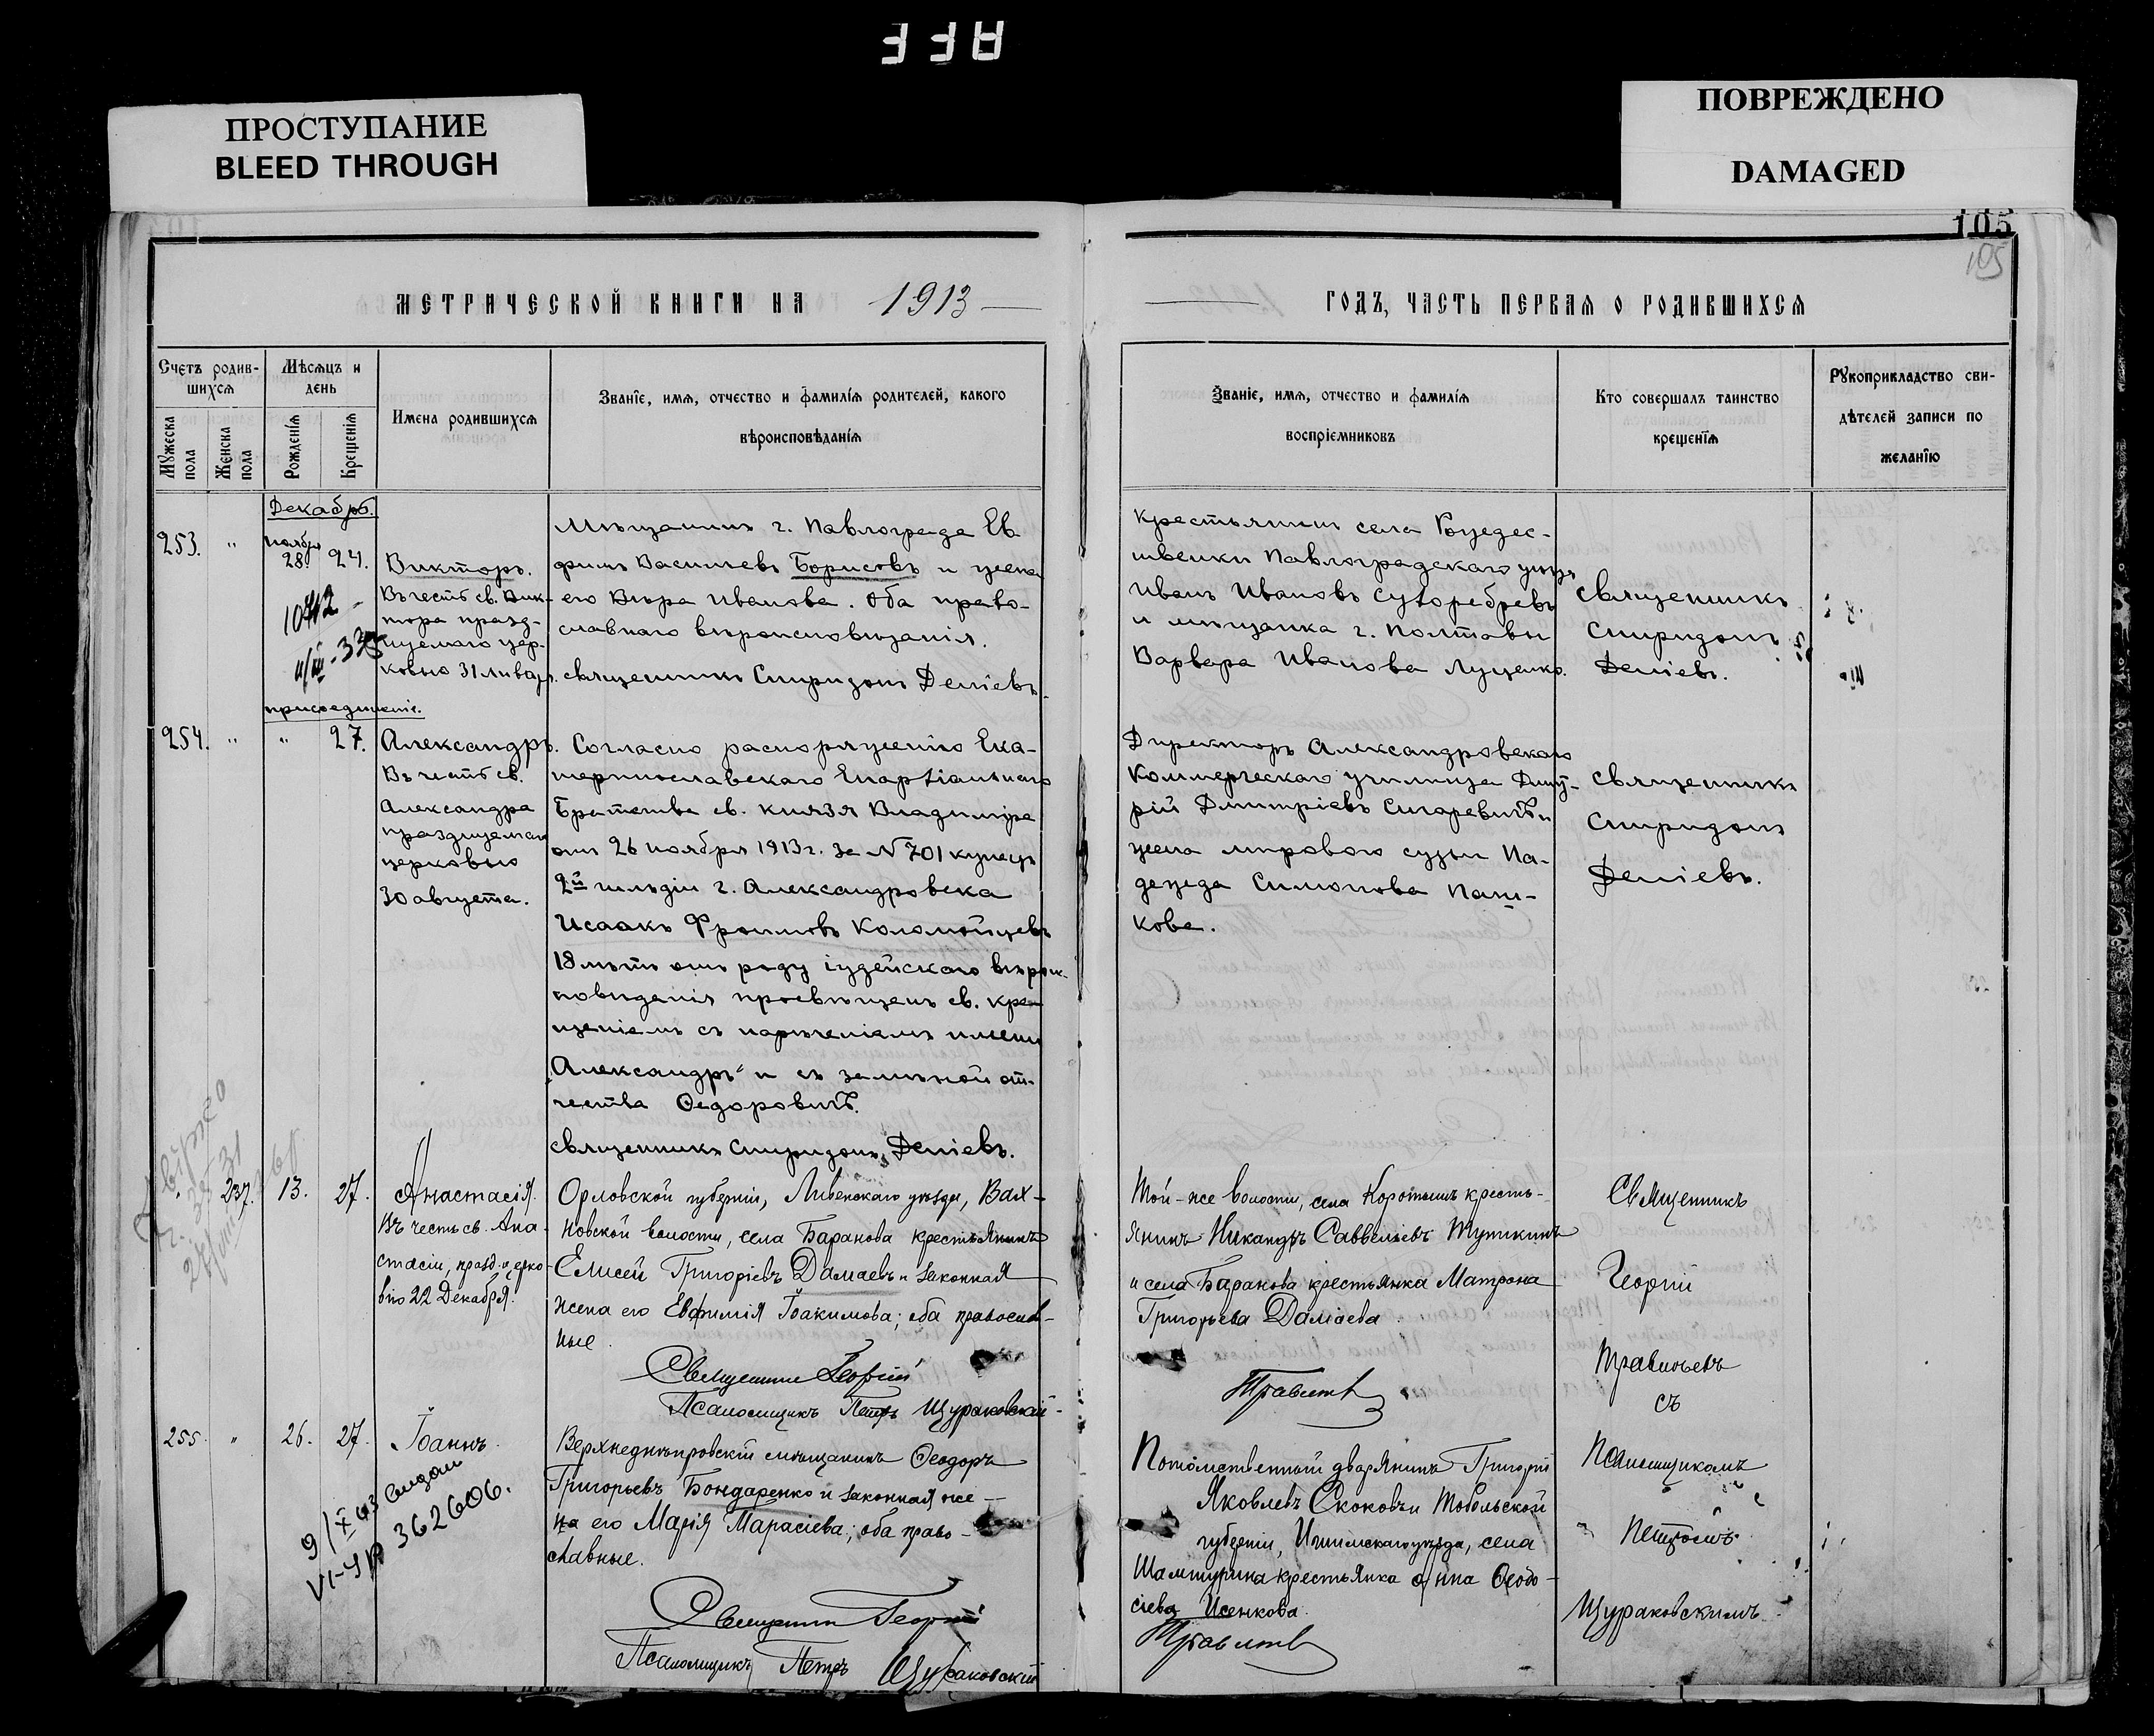 ПРОСТУПАНИЕ
BLEED THROUGH
ПОВРЕЖДЕНО
DAMAGED
105
105
МЕТРИЧЕСКОЙ КНИГИ НА 1913
ГОДЪ, ЧАСТЬ ПЕРВАЯ О РОДИВШИХСЯ
Счетъ родив-
шихся
Мужеска пола
Женска пола
Мѣсяцъ и
день
Рожденія
Крещенія
Имена родившихся
Званіе, имя, отчество и фамилія родителей, какого
вѣроисповѣданія
Званіе, имя, отчество и фамилія
воспріемниковъ
Кто совершалъ таинство
крещенія
Рукоприкладство сви-
дѣтелей записи по
желанію
Декабрь.
253. " Ноября 28. 24.
Викторъ.
Въ честь св. Вик-
тора празд-
нуемаго цер-
ковью 31 января.
Мѣщанинъ г. Павлограда Ев-
фимъ Васильевъ Борисовъ и жена
его Вѣра Иванова. Оба право-
славнаго вѣроисповѣданія.
Священникъ Спиридонъ Деніевъ.
Крестьянинъ села Рождес-
твенки Павлоградскаго уѣзда
Иванъ Ивановъ
и мѣщанка г. Полтавы
Варвара Иванова Луценко.
Священникъ
Спиридонъ
Деніевъ.
присоединеніе.
254. " " 27.
Александръ.
Въ честь св.
Александра
празднуемаго
церковью
30 августа.
Согласно распоряженію Ека-
теринославскаго Епархіальнаго
Братства св. князя Владиміра
отъ 26 ноября 1913 г. за № 701 купецъ
2й гильдіи г. Александровска
Исаакъ Фроимовъ Коломойцевъ
18 лѣтъ отъ роду іудейскаго вѣроис-
повѣданія просвѣщенъ св. кре-
щеніемъ съ нареченіемъ имени
„Александръ" и съ замѣной от-
чества Ѳедоровичъ.
Священникъ Спиридонъ Деніевъ.
Директоръ Александровскаго
Коммерческаго училища Дми-
трій Дмитріевъ и
жена мирового судьи На-
дежда Симонова Паш-
кова.
Священникъ
Спиридонъ
Деніевъ.
" 237. 13. 27.
Анастасія.
Въ честь св. Ана-
стасіи, празд. церко-
вію 22 Декабря.
Орловской губерніи, Ливенскаго уѣзда, Вах-
новской волости, села Баранова крестьянинъ
Елисей Григоріевъ Дамаевъ и законная
жена его Евфимія Іоакимова; оба православ-
ные.
Священникъ Георгій
Псаломщикъ Петръ Щураковскій
Той-же волости, села Коротышъ кресть-
янинъ Никандръ Саввельевъ Тупикинъ
и села Баранова крестьянка Матрона
Григорьева Дамаева.
Священникъ
Георгій
съ
255. " 26. 27.
Іоаннъ.
9/X 43
VI-ЧР 362606.
Верхнеднѣпровскій мѣщанинъ Ѳеодоръ
Григорьевъ Бондаренко и законная же-
на его Марія Тарасіева; оба право-
славные.
Священникъ Георгій
Псаломщикъ Петръ Щураковскій
Потомственный дворянинъ Григорій
Яковлевъ Скоковъ и Тобольской
губерніи, Ишимскаго уѣзда, села
Шамшурина крестьянка Анна Ѳеодо-
сіева Исенкова.
Псаломщикомъ
Петромъ
Щураковскимъ.